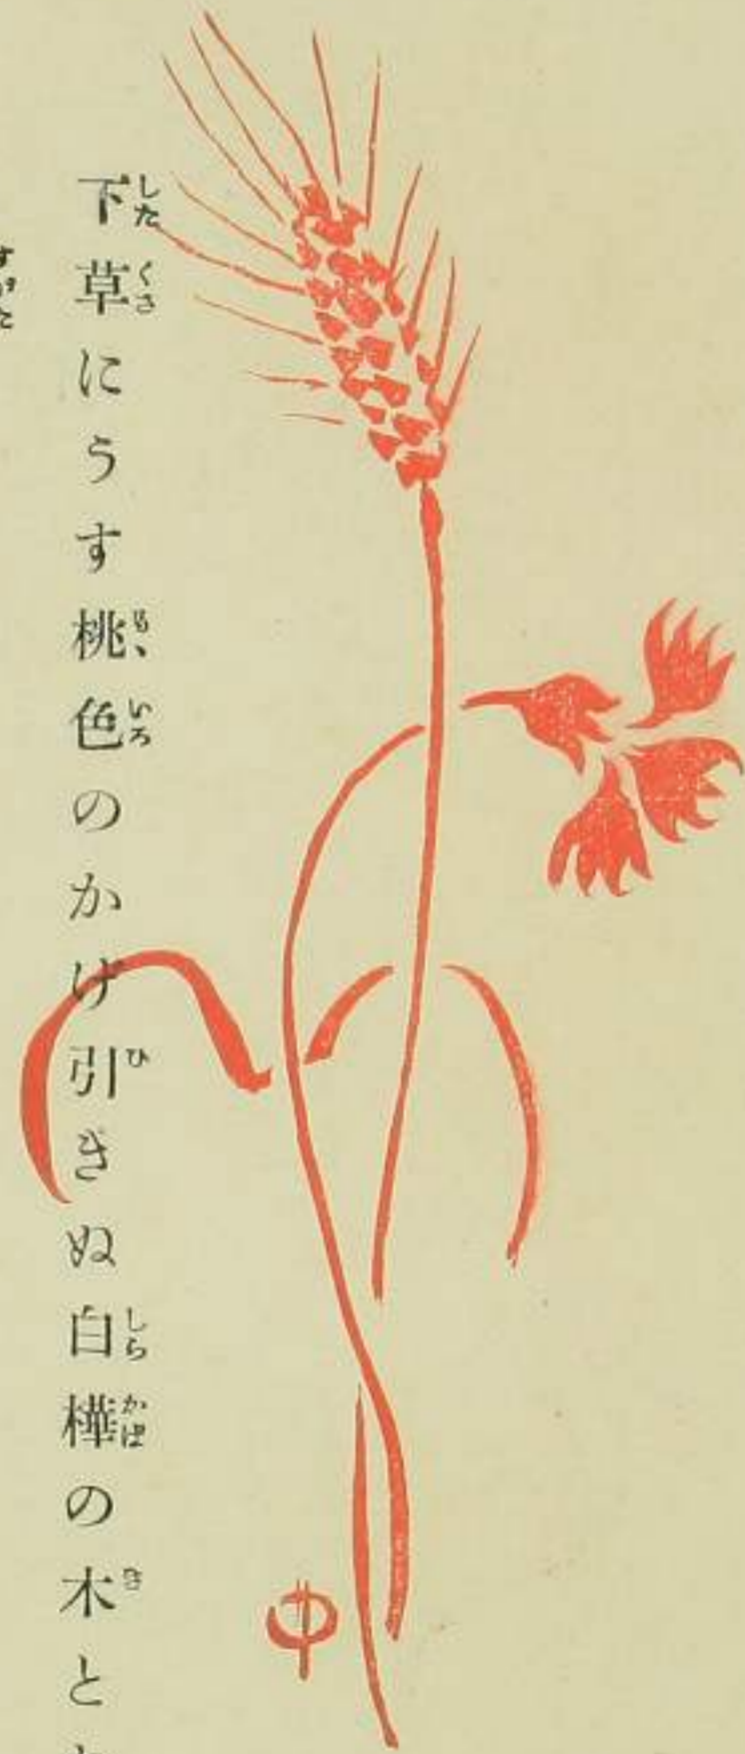 下草にうす桃色のかげ引きぬ白樺の木と